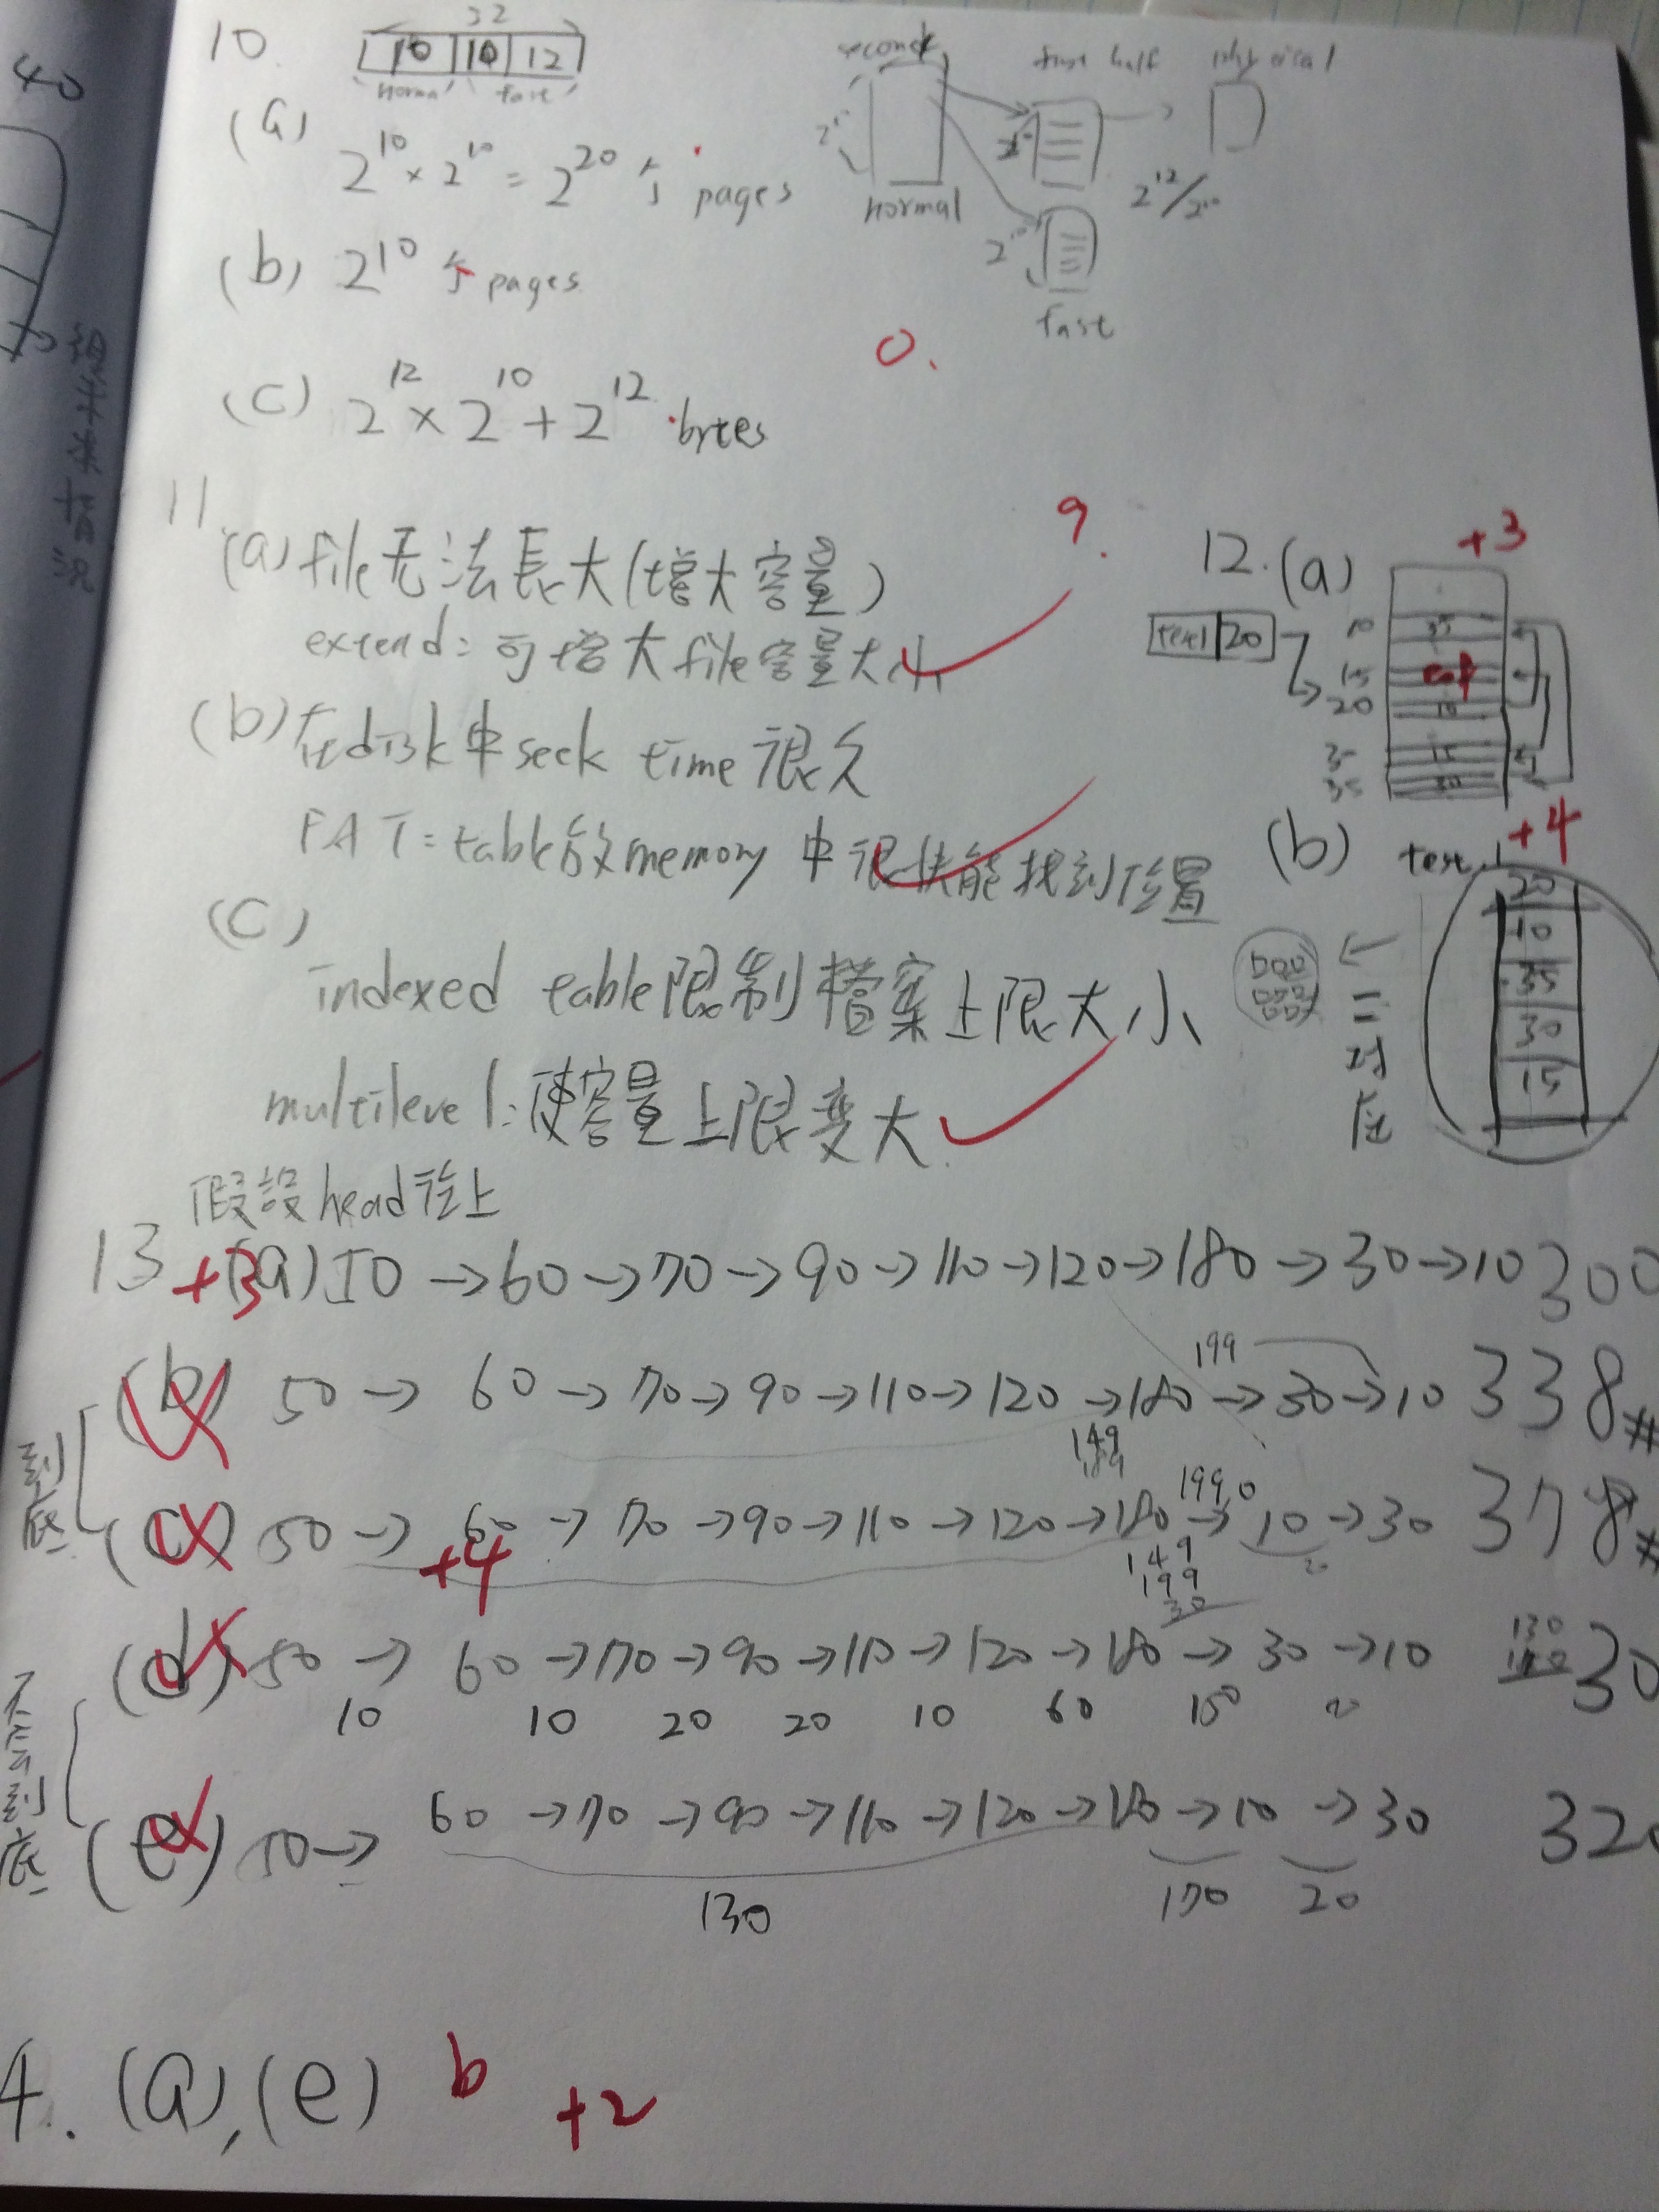 32
10. 10 10 12
second
physical
(a) 2^10 × 2^10 = 2^20 个 pages
normal
2^12/2^10
(b) 2^10 个 pages
fast
0.
(c) 2^12 × 2^10 + 2^12 bytes
11
9.
(a) file无法長大(增大容量)
extend: 可增大file容量大小
(b) 在disk中seek time很久
FAT: table放memory中很快能找到位置
(c)
indexed table限制檔案上限大小
multilevel: 使容量上限变大
12. (a) +3
test 20
10 35
15 eof
20 10
30 15
35 30
(b) test +4
20
10
35
30
15
假設head往上
13 +3 (a) 50 → 60 → 70 → 90 → 110 → 120 → 180 → 30 → 10 300
199
(b) 50 → 60 → 70 → 90 → 110 → 120 → 180 → 30 → 10 338#
149
到底
199,0
(c) 50 → 60 → 70 → 90 → 110 → 120 → 180 → 10 → 30 378#
+4
149
199
30
(d) 50 → 60 → 70 → 90 → 110 → 120 → 180 → 30 → 10 130 30
10 10 20 20 10 60 150 20
不会到底
(e) 50 → 60 → 70 → 90 → 110 → 120 → 180 → 10 → 30 320
130 170 20
4. (a),(e) b +2